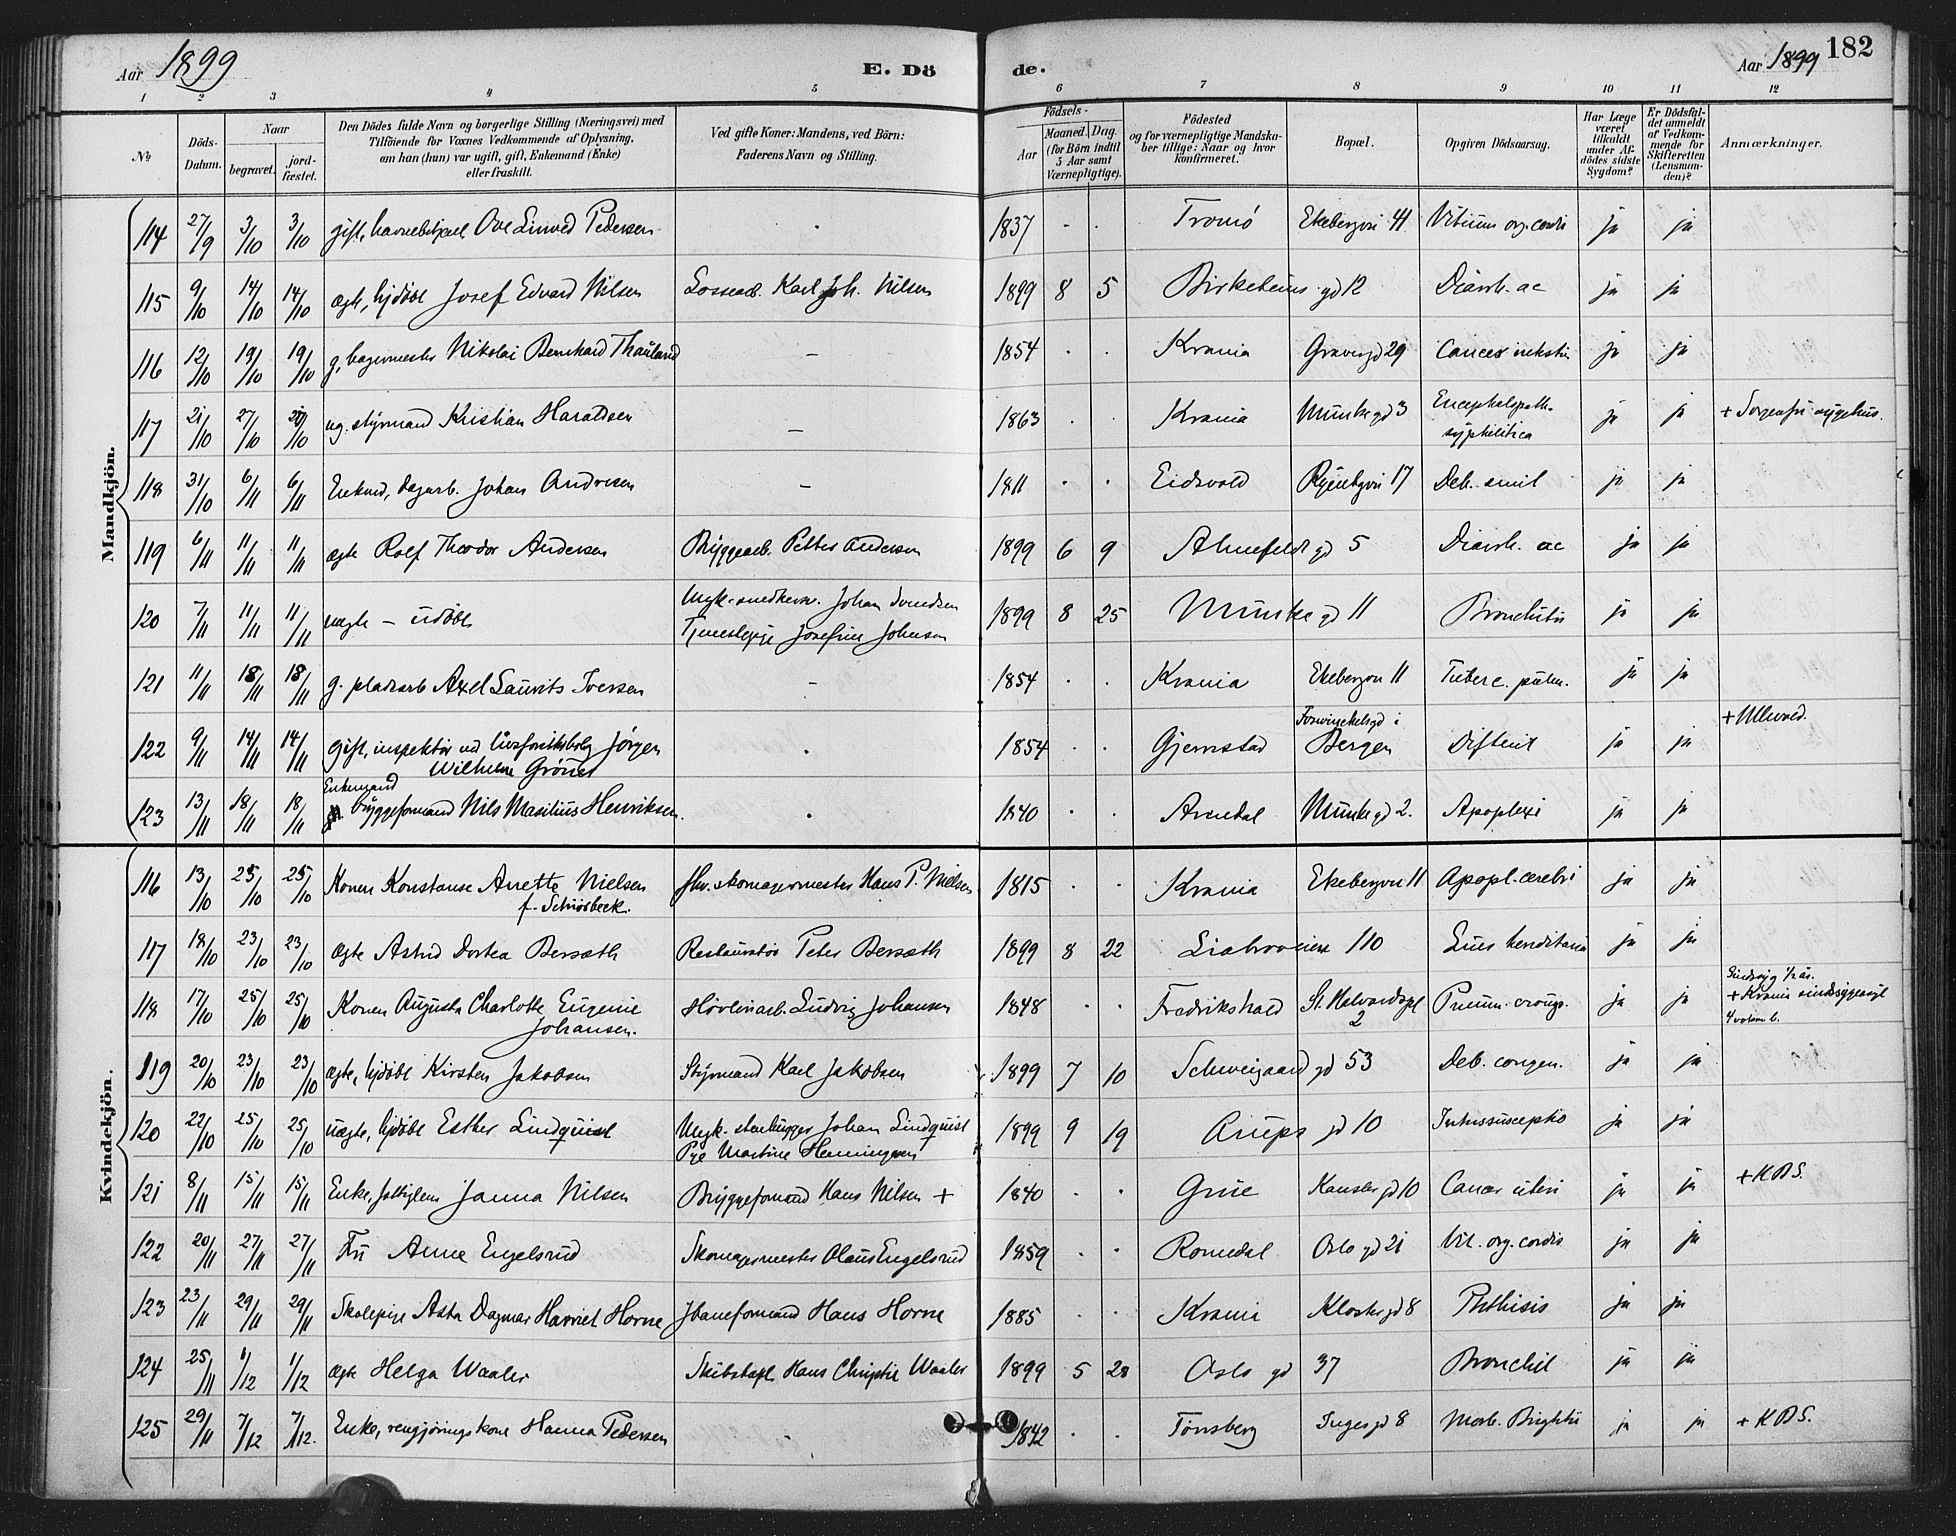 Aar 1899 E. Dö de. Aar 1899 182
1 2 3 4 5 6 7 8 9 10 11 12
No
Döds-Datum.
Naar
begravet.
jord-fæstet.
Den Dödes fulde Navn og borgerlige Stilling (Næringsvei) med
Tilföiende for Voxnes Vedkommende af Oplysning,
om han (hun) var ugift, gift, Enkemand (Enke)
eller fraskilt.
Ved gifte Koner: Mandens, ved Börn:
Faderens Navn og Stilling.
Födsels-
Aar
Maaned. Dag.
(for Börn indtil
5 Aar samt
Værnepligtige).
Födested
og for værnepligtige Mandska-
ber tillige: Naar og hvor
konfirmeret.
Bopæl.
Opgiven Dödsaarsag.
Har Læge
været
tilkaldt
under Af-
dödes sidste
Sygdom?
Er Dödsfal-
det anmeldt
af Vedkom-
mende for
Skifteretten
(Lensman-
den)?
Anmærkninger.
Mandkjön.
114 27/9 3/10 3/10 gift, Ove Pedersen 1837 Tromö Ekebergvei Vitium org. cordis ja ja
115 9/10 14/10 14/10 ægte, hjdøbt Josef Edvard Nilsen Lossearb. Karl Joh. Nilsen 1899 8 5 Birkebeinergd 12 Diarrh. ac ja ja
116 12/10 19/10 19/10 g. bagermester Nikolai Bernhard Thauland – 1854 Krania Gravergd 29 Cancer ja ja
117 21/10 27/10 ug. styrmand Kristian Haraldsen – 1863 Krania Munkegd 3 Encephalopath. syphilitica ja ja + Sorgenfri sygehus.
118 31/10 6/11 6/11 Enkmd, dagarb. Johan Andresen – 1811 Eidsvold 17 Deb. senil ja ja
119 6/11 11/11 11/11 ægte Rolf Theodor Andersen Bryggearb. Petter Andersen 1899 6 9 Ahnefeldtgd 5 Diarrh. ac ja ja
120 7/11 11/11 11/11 uægte – udøbt Ungk. snedkersv. Johan Svendsen
Tjenestepige Josefine Johnsen 1899 8 25 Munkegd 11 Bronchitis ja ja
121 11/11 18/11 18/11 g. pladsarb Axel Laurits Iversen – 1854 Krania Ekebergvei 11 Tuberc. pulm. ja ja
122 9/11 14/11 14/11 gift, inspektør ved livsforsikrbolag Jörgen
Wilhelm 1854 Gjerrestad Bergen Difterit ja ja + Ullevaal.
123 13/11 18/11 18/11 Enkemand
byggeformand Nils Masilius Henriksen. 1840 Arendal Munkegd 2. Apoplexi ja ja
Kvindekjön.
116 13/10 25/10 25/10 Konen Konstanse Anette Nielsen
f. Schiørbeck. Hv. skomagermester Hans P. Nielsen 1815 Krania Ekebergvei 11 Apopl. cerebri ja ja
117 18/10 23/10 23/10 ægte Astrid Dortea Bersæth Restauratør Peter Bersæth 1899 8 22 Liabroveien 110 Lues hereditaria ja ja
118 17/10 25/10 25/10 Konen Augusta Charlotte Eugenie
Johansen. Høvleriarb. Ludvig Johansen 1848 Fredrikshald St. Halvardspl 2 Pneum. croup. ja ja Sindssyg 1/2 år.
+ Krania sindssygeasyl
119 20/10 23/10 23/10 ægte, hjdøbt Kirsten Jakobsen Styrmand Karl Jakobsen 1899 7 10 Schweigaardgd 53 Deb. congen. ja ja
120 22/10 25/10 25/10 uægte, hjdøbt Esther Lindquist Ungk. stenhugger Johan Lindquist
Pge Martine Henningsen 1899 9 19 Arupsgd 10 Intussusceptio ja ja
121 8/11 15/11 15/11 Enke, fattiglem Janna Nilsen Bryggeformand Hans Nilsen + 1840 Grue Kanslergd 10 Cancer uteri ja ja + KDS.
122 20/11 27/11 27/11 Fru Anne Engelsrud Skomagermester Olaus Engelsrud 1859 Romedal Oslogd 21 Vit. org. cordis ja ja
123 23/11 29/11 29/11 Skolepige Asta Dagmar Harriet Horne Jbaneformand Hans Horne 1885 Krania Klostergd 8 Phthisis ja ja
124 25/11 1/12 1/12 ægte Helga Waaler Skibskapt. Hans Christie Waaler 1899 5 28 Oslogd 37 Bronchit ja ja
125 29/11 7/12 7/12. Enke, rengjøringskone Hanna Pedersen – 1842 Tønsberg Ingegd 8 Morb. Brightii ja ja + KDS.